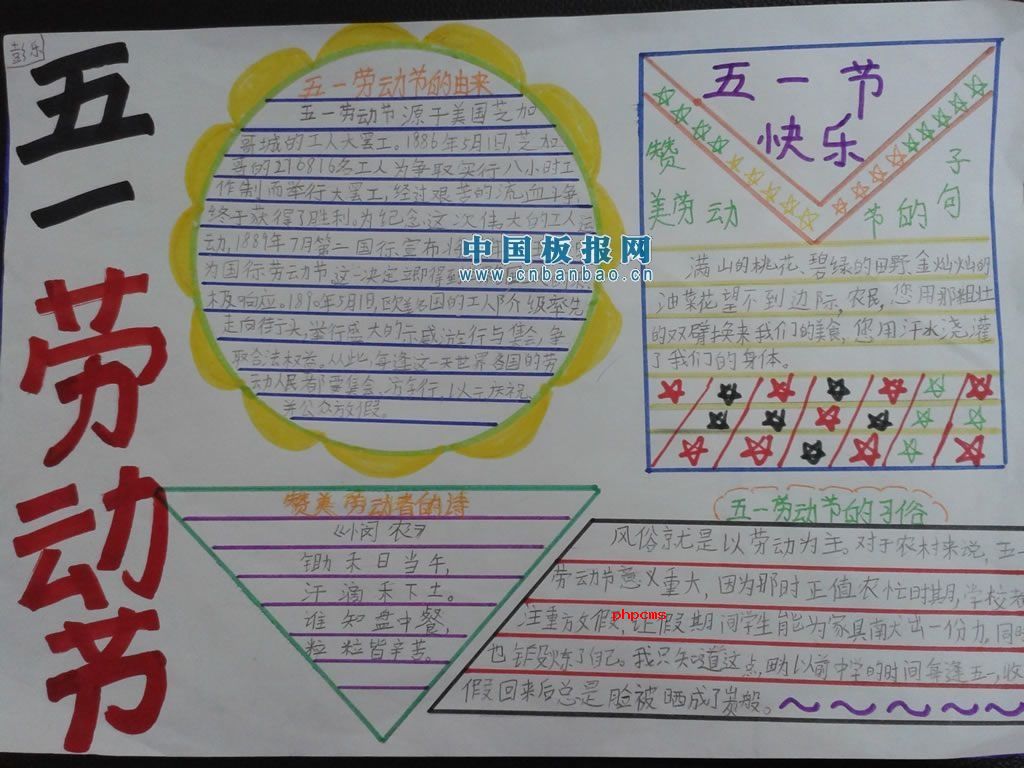 彭乐
五一劳动节
五一劳动节的由来
五一劳动节源于美国芝加
哥城的工人大罢工。1886年5月1日,芝加
哥的216816名工人为争取实行八小时工
作制而举行大罢工,经过艰苦的流血斗争,
终于获得了胜利。为纪念这次伟大的工人运
动,1889年7月第二国际宣布将
为国际劳动节。这一决定立即得到
极响应。1890年5月1日,欧美各国的工人阶级率先
走向街头,举行盛大的示威游行与集会,争
取合法权益。从此,每逢这一天世界各国的劳
动人民都要集会、游行,以示庆祝,
并公众放假。
五一节
快乐
赞美劳动节的句子
满山的桃花、碧绿的田野,金灿灿的
油菜花望不到边际,农民,您用那粗壮
的双臂换来我们的美食,您用汗水浇灌
了我们的身体。
中国板报网
www.cnbanbao.cn
赞美劳动者的诗
《悯农》
锄禾日当午,
汗滴禾下土。
谁知盘中餐,
粒粒皆辛苦。
五一劳动节的习俗
风俗就是以劳动为主。对于农村来说,五一
劳动节意义重大,因为那时正值农忙时期,学校者
注重方文假,让假期间学生能为家具南犬出一份力,同时
phpcms
也锻炼了自己。我只知道这点,助以前中学的时间每逢五一,收
假回来后总是脸被晒成了炭般。